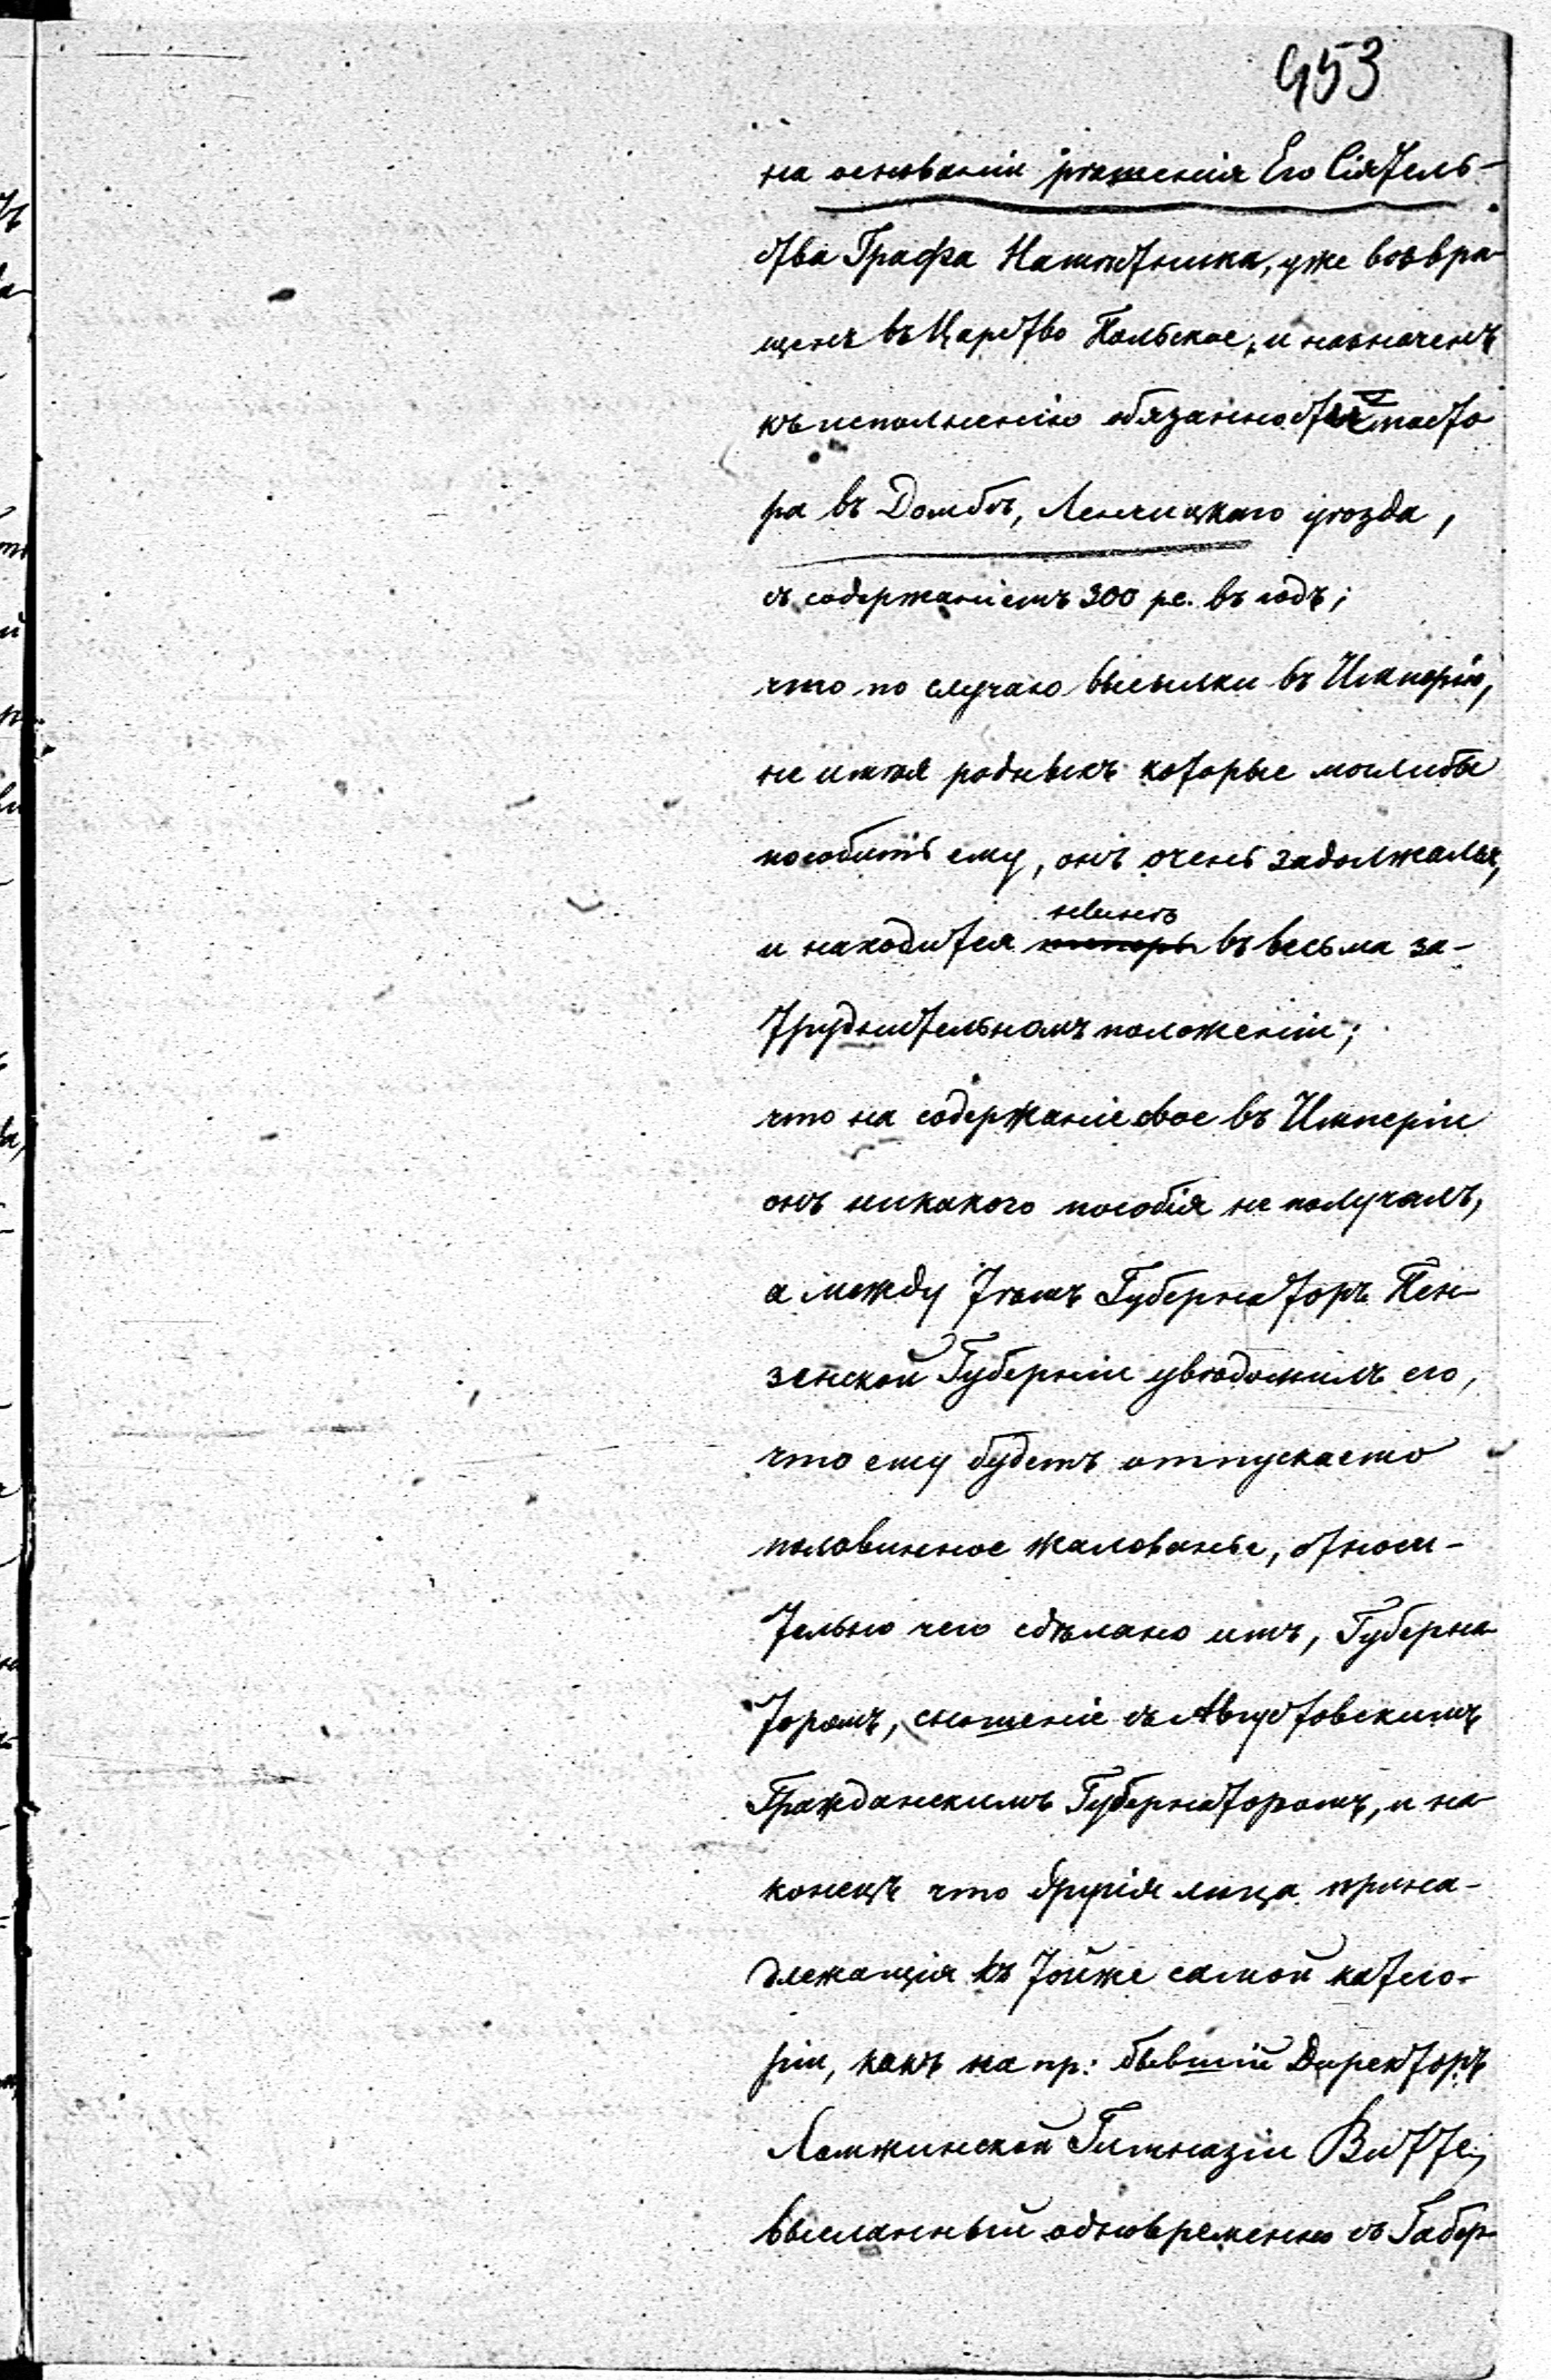 453
на основаніи рѣшенія Его Сіятель-
ства Графа Намѣстника, уже возвра-
щенъ въ Царство Польское, и назначенъ
къ исполненію обязанностей пасто
ра въ Домбѣ, Ленчицкаго уѣзда,
съ содержаніемъ 300 рс. въ годъ;
что по случаю высылки въ Имперію,
не имѣя родныхъ которые моглибы
пособить ему, онъ очень задолжалъ,
нынѣ
и находится теперь въ весьма за-
труднительномъ положеніи;
что на содержаніе свое въ Имперіи
онъ никакого пособія не получалъ,
а между тѣмъ Губернаторъ Пен-
зенской Губерніи увѣдомилъ его,
что ему будетъ отпускаемо
половинное жалованье, относи-
тельно чего сдѣлано имъ, Губерна
торомъ, сношеніе съ Августовскимъ
Гражданскимъ Губернаторомъ, и на
конецъ что другія лица прина-
длежащія къ тойже самой катего-
ріи, какъ на пр: бывшій Директоръ
Ломжинской Гимназіи Витте,
высланный одновременно съ Габер-